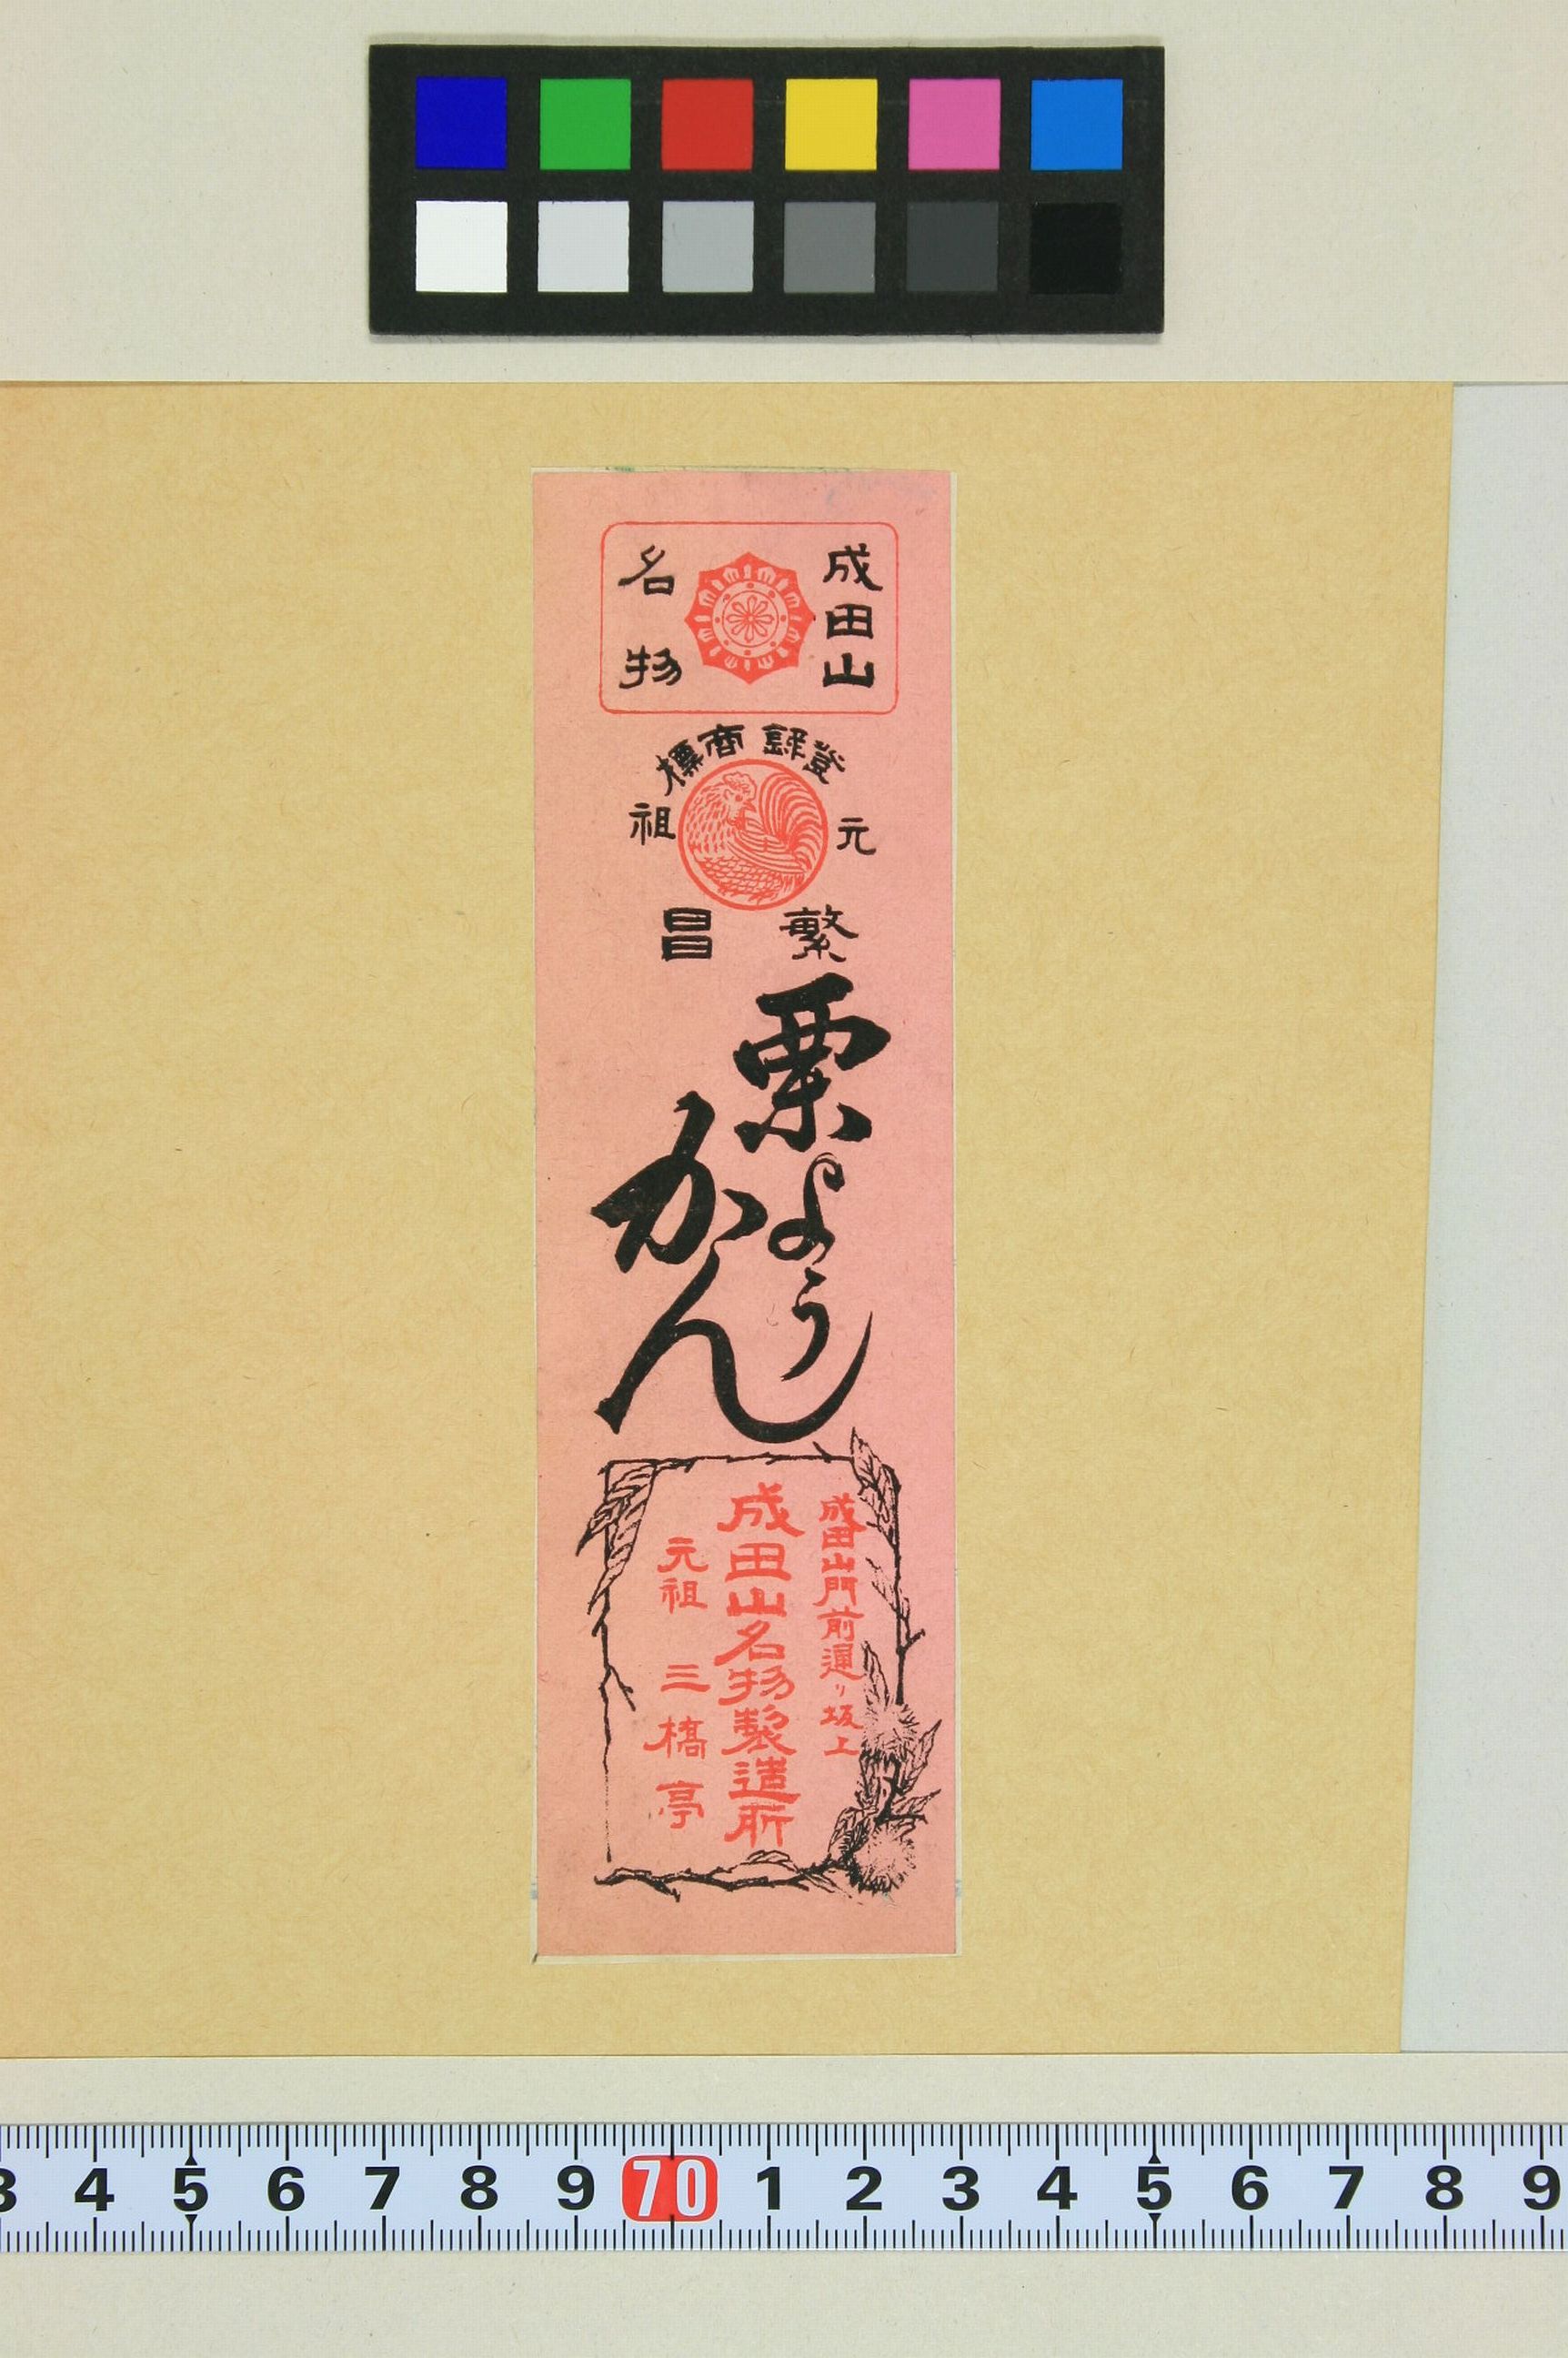 成田山
名物
登録商標
元祖
繁昌
栗よう
かん
成田山門前通り坂上
成田山名物製造所
元祖 三橋亭
3 4 5 6 7 8 9 70 1 2 3 4 5 6 7 8 9